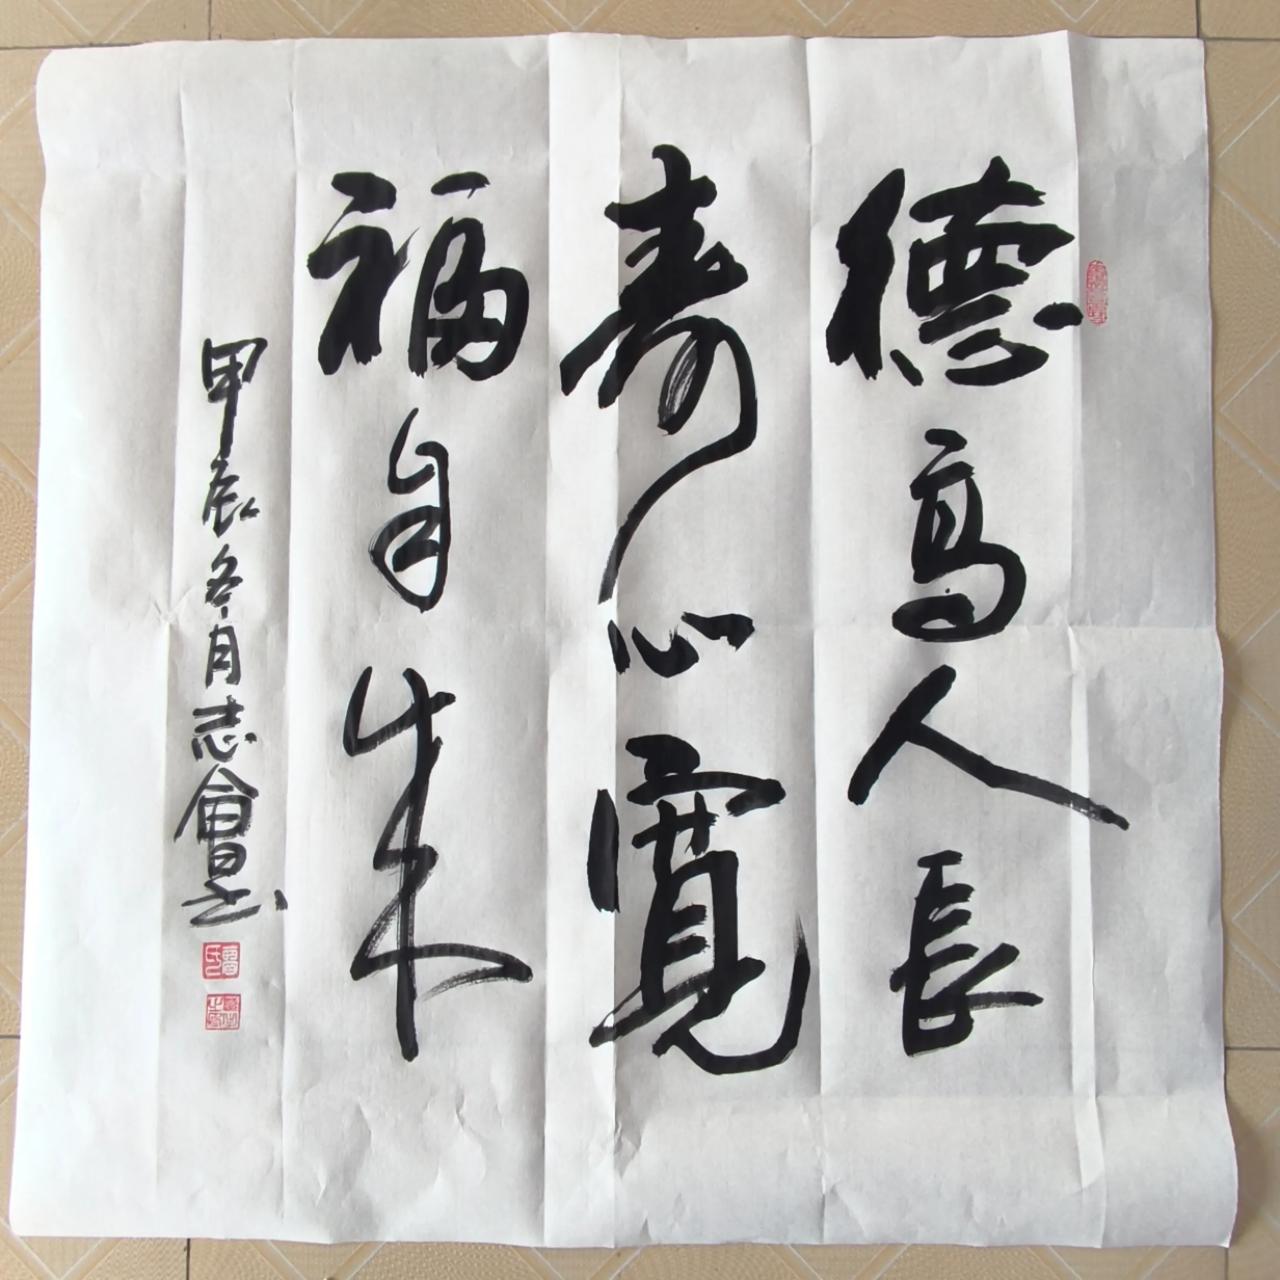 德高人長
壽心寬
福自來
甲辰冬月志會書